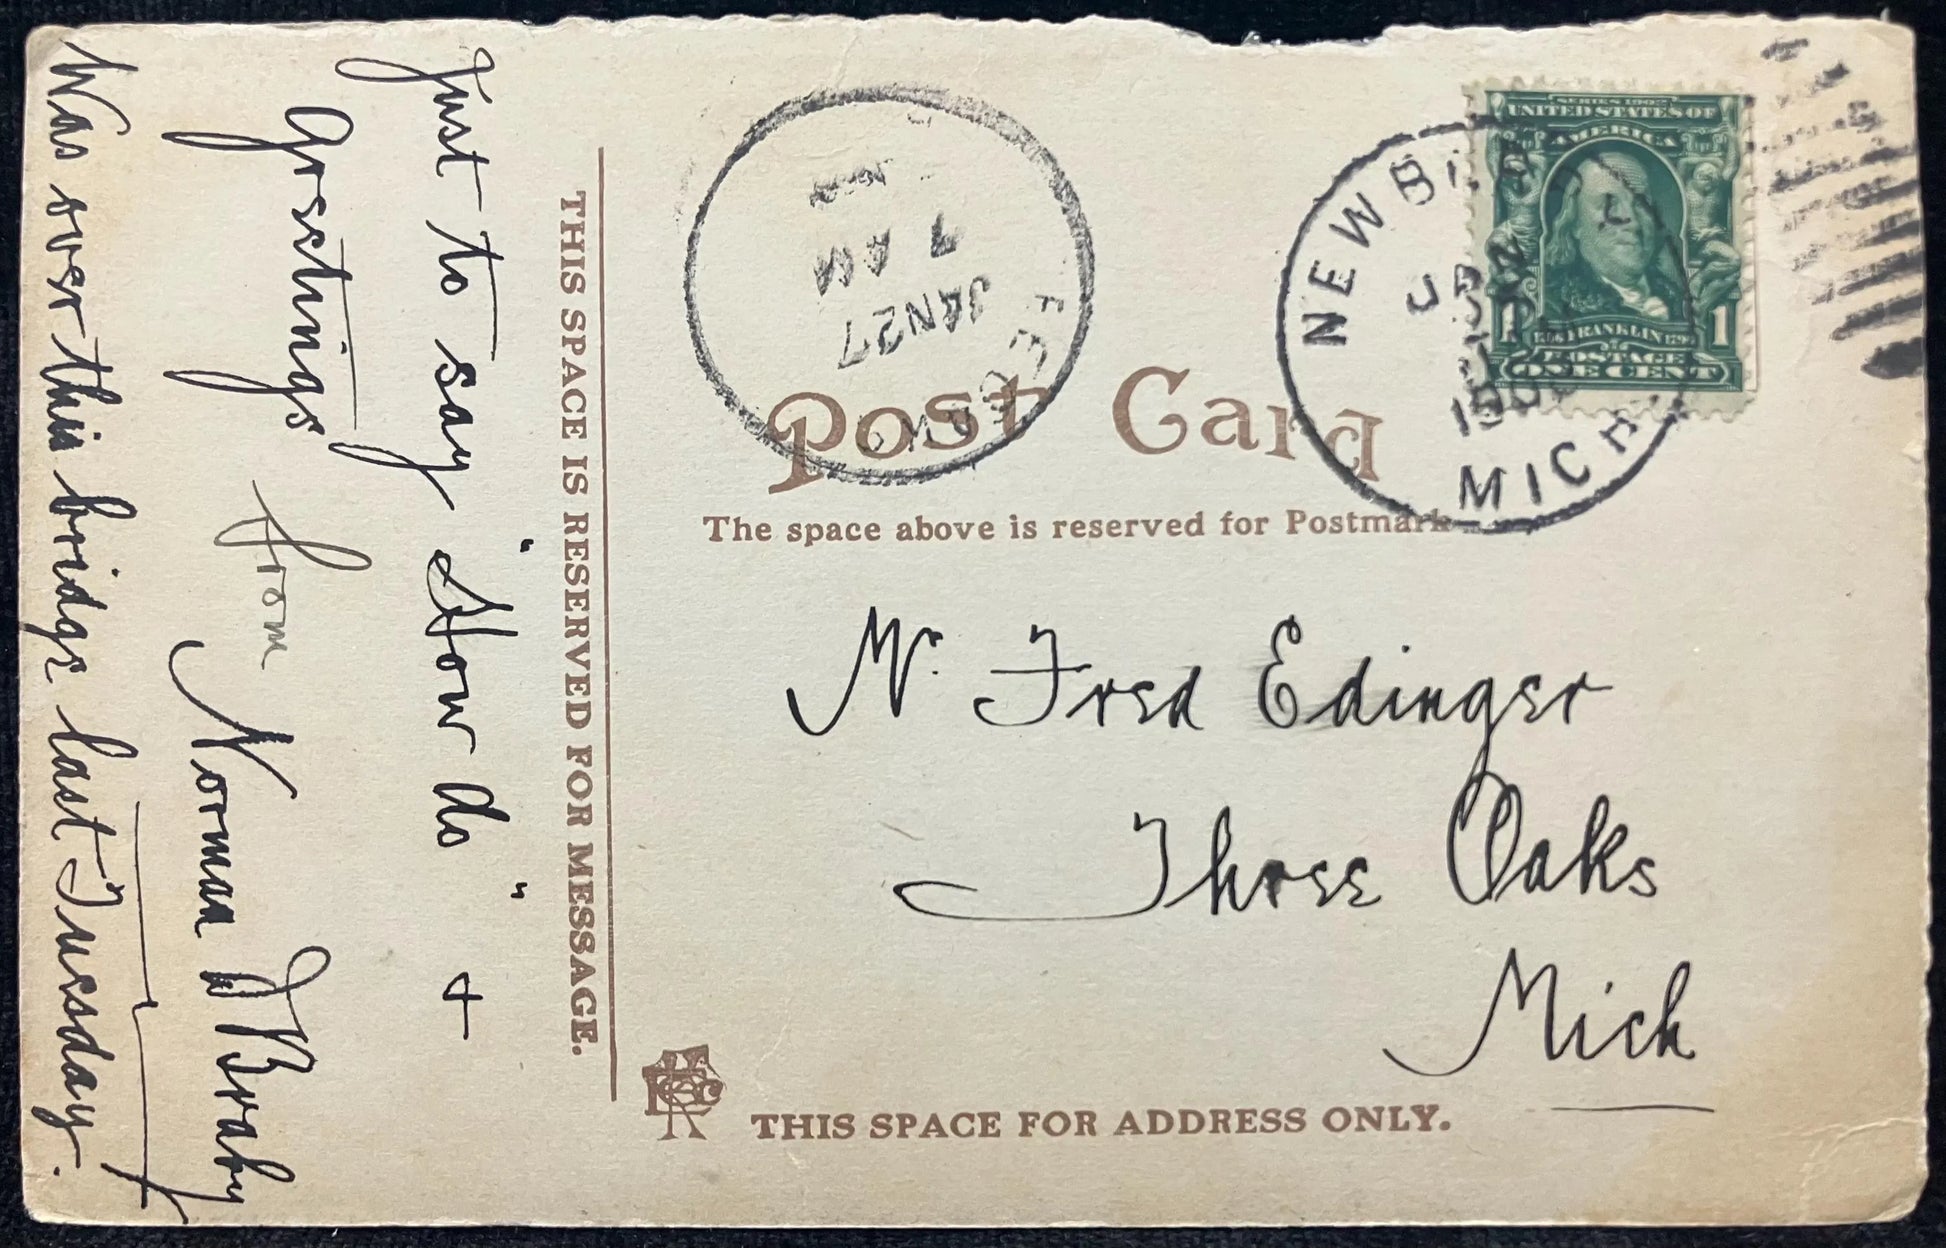 Just to say "How do" +
Greetings
from
Norman J Braby
Was over this bridge last Tuesday.
THIS SPACE IS RESERVED FOR MESSAGE.
REC'D
7 AM
JAN 27
Post Card
The space above is reserved for Postmark
NEW
MICH
SERIES 1902
UNITED STATES OF
AMERICA
FRANKLIN
1 1
POSTAGE
ONE CENT
Mr. Fred Edinger
Three Oaks
Mich
THIS SPACE FOR ADDRESS ONLY.